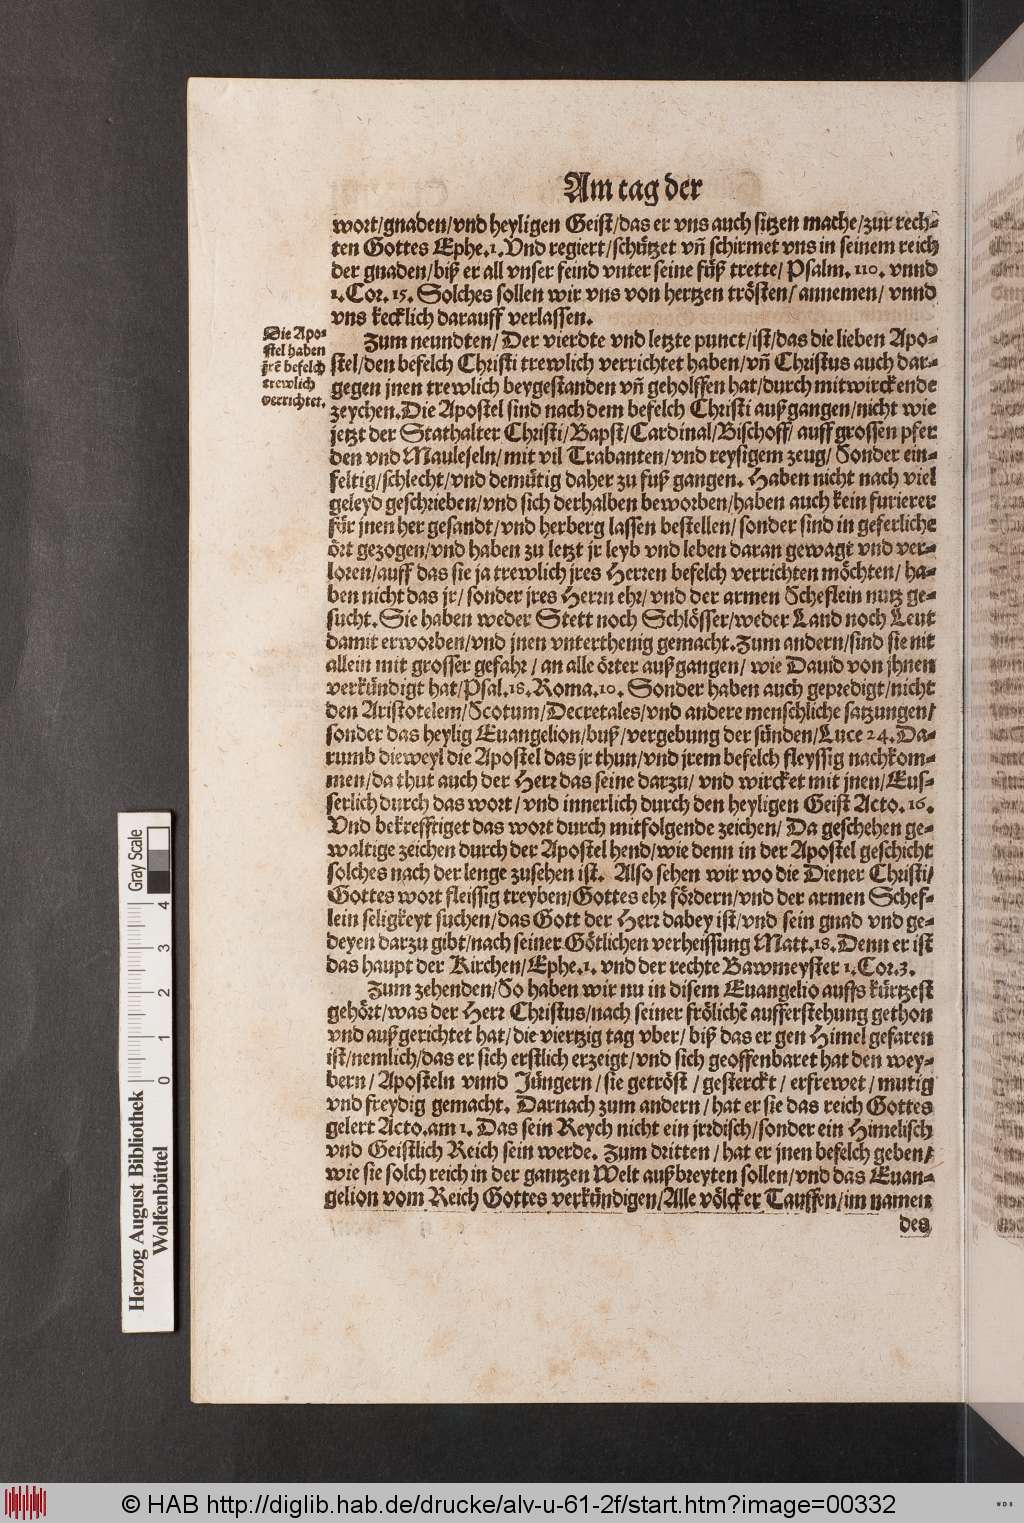 Am tag der
wort/gnaden/vnd heyligen Geist/das er vns auch sitzen mache/zur rech-
ten Gottes Ephe.1. Vnd regiert/schützet vñ schirmet vns in seinem reich
der gnaden/biß er all vnser feind vnter seine füß trette/ Psalm. 110. vnnd
1. Cor. 15. Solches sollen wir vns von hertzen trösten/ annemen/ vnnd
vns kecklich darauff verlassen.
Die Apo-
stel haben
jrẽ befelch
trewlich
verrichtet.
Zum neundten/ Der vierdte vnd letzte punct/ist/das die lieben Apo-
stel/den befelch Christi trewlich verrichtet haben/vñ Christus auch dar-
gegen jnen trewlich beygestanden vñ geholffen hat/durch mitwirckende
zeychen. Die Apostel sind nach dem befelch Christi außgangen/nicht wie
jetzt der Stathalter Christi/Bapst/Cardinal/Bischoff/ auff grossen pfer
den vnd Mauleseln/mit vil Trabanten/vnd reysigem zeug/ Sonder ein-
feltig/schlecht/vnd demütig daher zu fuß gangen. Haben nicht nach viel
geleyd geschrieben/vnd sich derhalben beworben/haben auch kein furierer
för jnen her gesandt/vnd herberg lassen bestellen/ sonder sind in geferliche
ört gezogen/vnd haben zu letzt jr leyb vnd leben daran gewagt vnd ver-
loren/auff das sie ja trewlich jres Herren befelch verrichten möchten/ ha-
ben nicht das jr/ sonder jres Herrn ehr/ vnd der armen Scheflein nutz ge-
sucht. Sie haben weder Stett noch Schlösser/weder Land noch Leut
damit erworben/vnd jnen vnterthenig gemacht. Zum andern/sind sie nit
allein mit grosser gefahr/ an alle örter außgangen/ wie Dauid von jhnen
verkündigt hat/Psal.18. Roma.10. Sonder haben auch gepredigt/nicht
den Aristotelem/Scotum/Decretales/vnd andere menschliche satzungen/
sonder das heylig Euangelion/buß/vergebung der sünden/Luce 24. Da-
rumb dieweyl die Apostel das jr thun/vnd jrem befelch fleyssig nachkom-
men/da thut auch der Herr das seine darzu/ vnd wircket mit jnen/Eus-
serlich durch das wort/ vnd innerlich durch den heyligen Geist Acto. 16.
Vnd bekrefftiget das wort durch mitfolgende zeichen/ Da geschehen ge-
waltige zeichen durch der Apostel hend/wie denn in der Apostel geschicht
solches nach der lenge zusehen ist. Also sehen wir wo die Diener Christi/
Gottes wort fleissig treyben/Gottes ehr fördern/vnd der armen Schef-
lein seligkeyt suchen/das Gott der Herr dabey ist/vnd sein gnad vnd ge-
deyen darzu gibt/nach seiner Götlichen verheissung Matt.18. Denn er ist
das haupt der Kirchen/Ephe.1. vnd der rechte Bawmeyster 1. Cor.3.
Zum zehenden/So haben wir nu in disem Euangelio auffs kürtzest
gehört/was der Herr Christus/nach seiner frölichẽ aufferstehung gethon
vnd außgerichtet hat/die viertzig tag vber/ biß das er gen Himel gefaren
ist/nemlich/das er sich erstlich erzeigt/vnd sich geoffenbaret hat den wey-
bern/ Aposteln vnnd Jüngern/ sie getröst/ gesterckt/ erfrewet/ mutig
vnd freydig gemacht. Darnach zum andern/ hat er sie das reich Gottes
gelert Acto.am 1. Das sein Reych nicht ein jrrdisch/sonder ein Himelisch
vnd Geistlich Reich sein werde. Zum dritten/ hat er jnen befelch geben/
wie sie solch reich in der gantzen Welt außbreyten sollen/vnd das Euan-
gelion vom Reich Gottes verkündigen/Alle völcker Tauffen/im namen
des
Gray Scale
4
3
2
1
0
Herzog August Bibliothek
Wolfenbüttel
© HAB http://diglib.hab.de/drucke/alv-u-61-2f/start.htm?image=00332
WDB